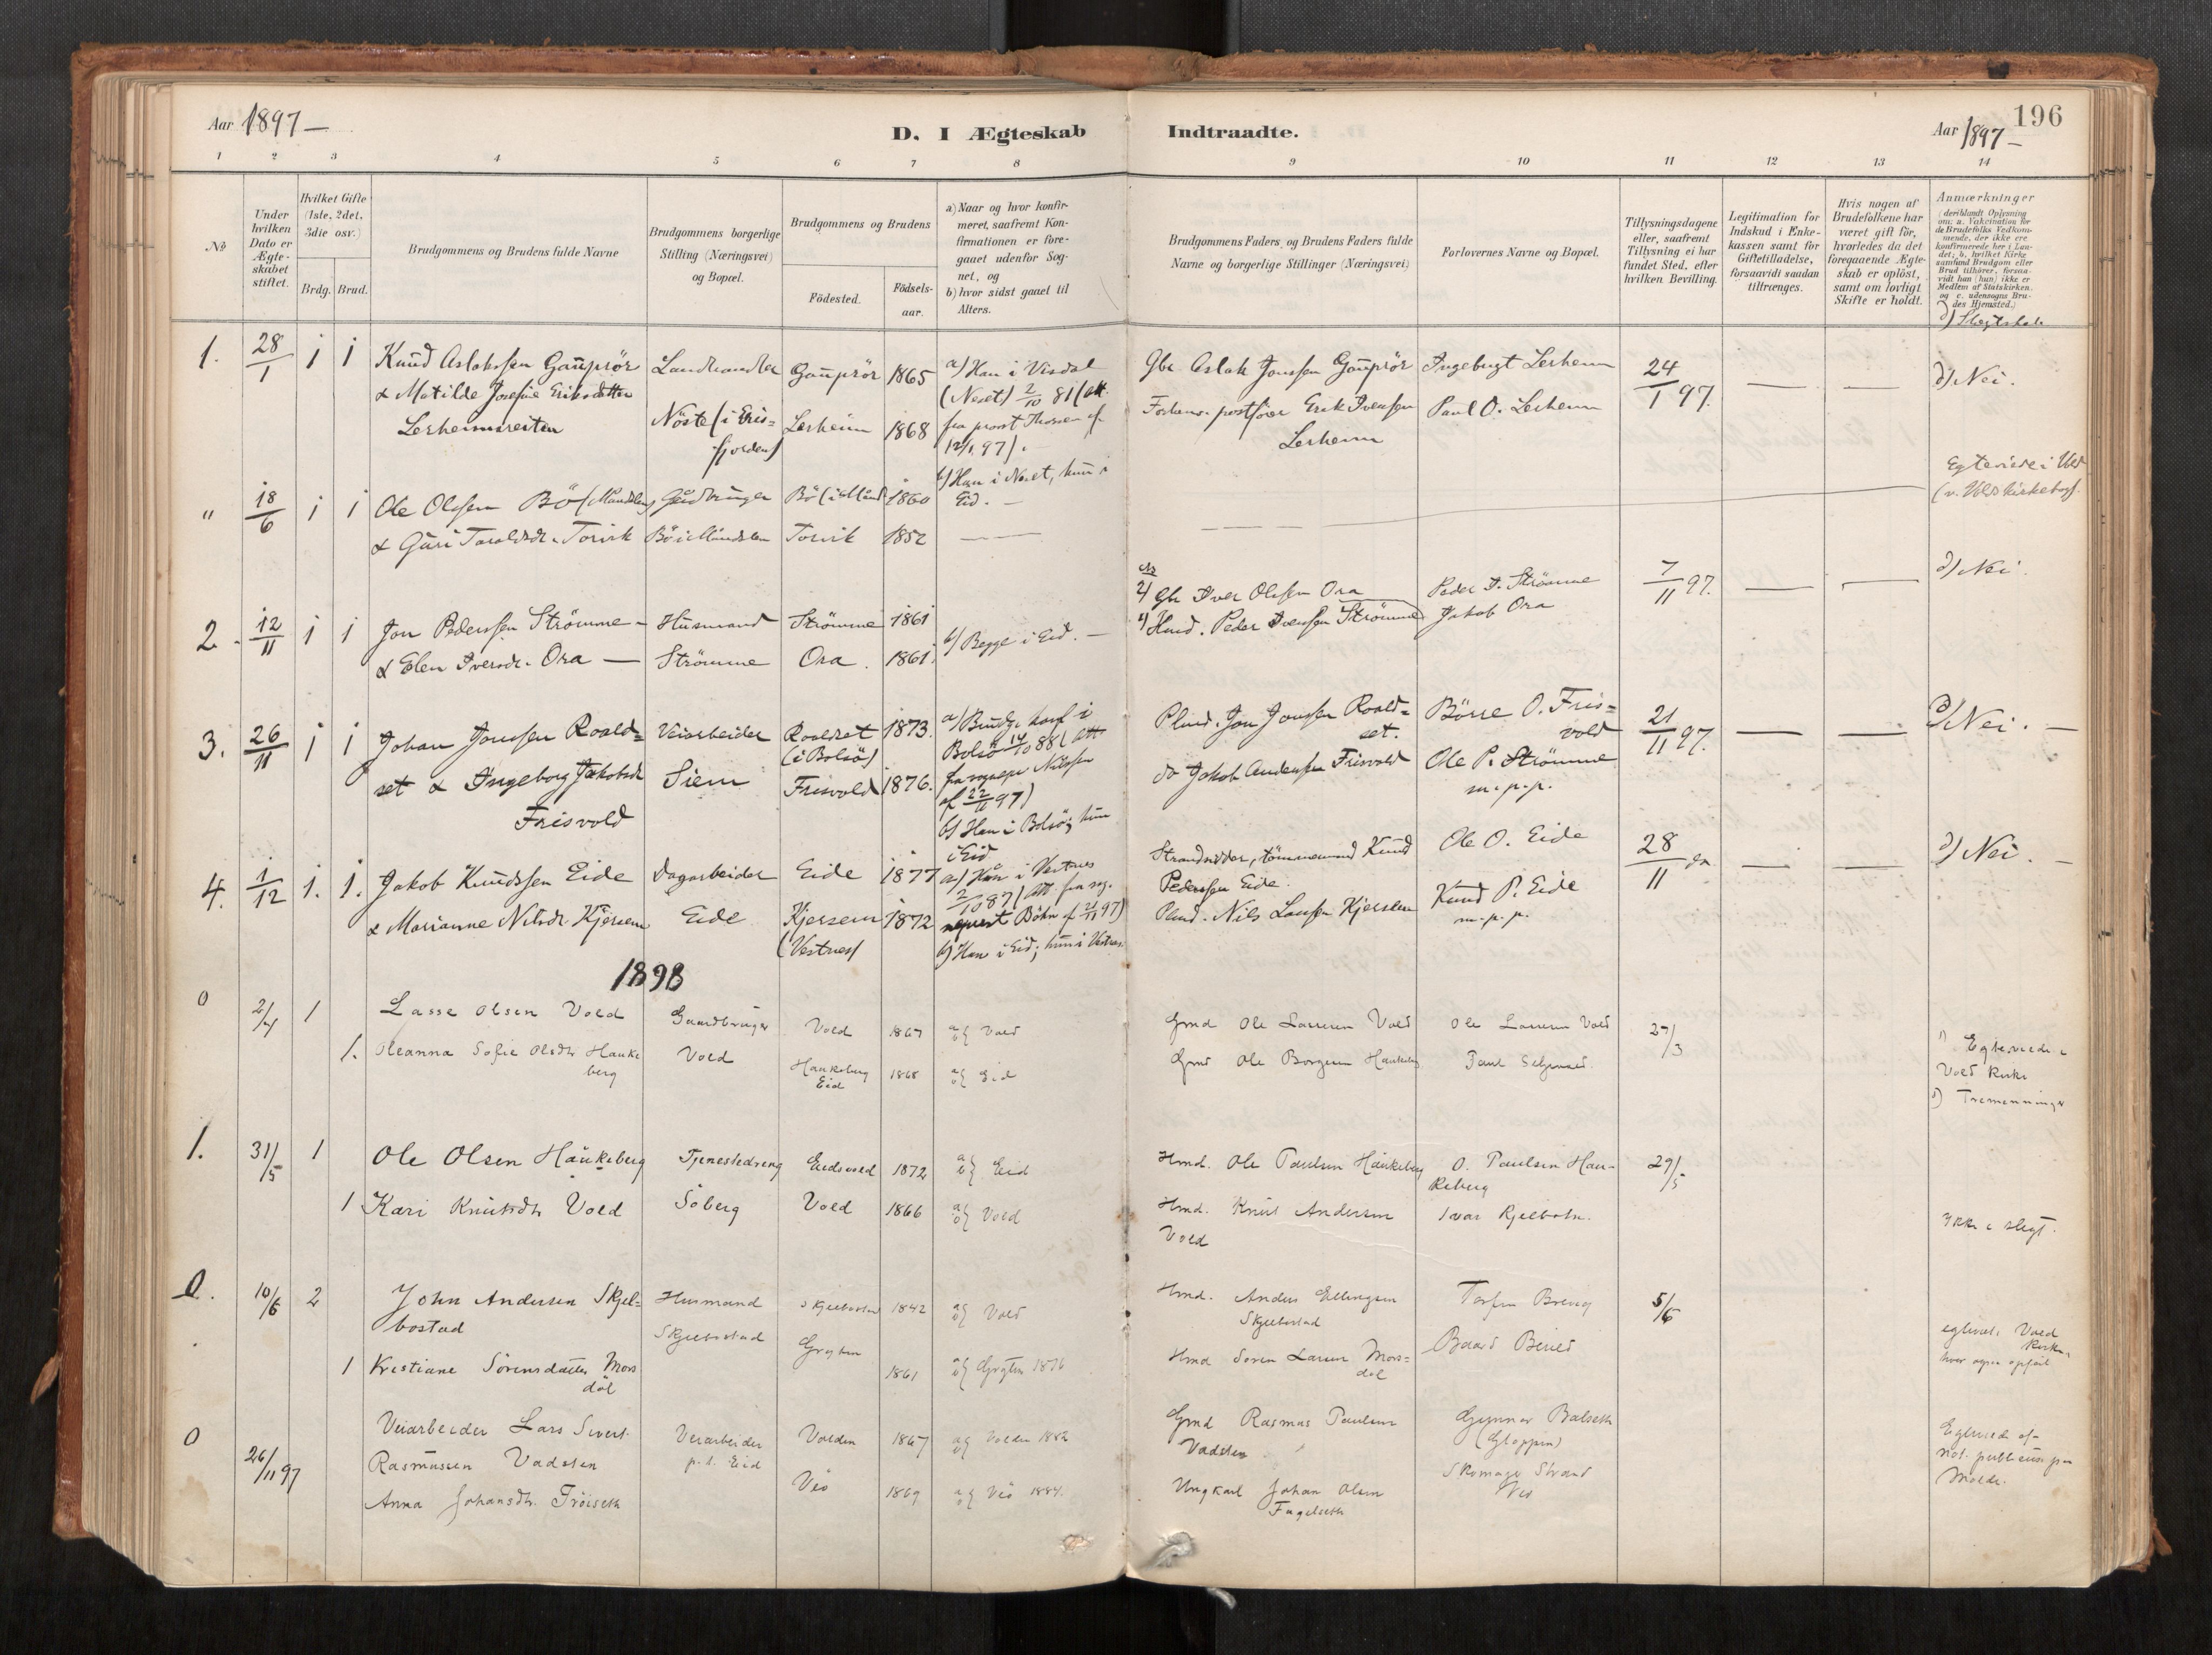 Aar 1897 —
D. I Ægteskab
Indtraadte.
Aar 1897 —
196
1 2 3 4 5 6 7 8 9 10 11 12 13 14
№
Under hvilken Dato er Ægteskabet stiftet.
Hvilket Gifte (1ste, 2det, 3die osv.)
Brdg. Brud.
Brudgommens og Brudens fulde Navne
Brudgommens borgerlige Stilling (Næringsvei) og Bopæl.
Brudgommens og Brudens
Födested.
Födsels-aar.
a) Naar og hvor konfirmeret, saafremt Konfirmationen er foregaaet udenfor Sognet, og
b) hvor sidst gaaet til Alters.
Brudgommens Faders og Brudens Faders fulde Navne og borgerlige Stillinger (Næringsvei)
Forlovernes Navne og Bopæl.
Tillysningsdagene eller, saafremt Tillysning ei har fundet Sted, efter hvilken Bevilling.
Legitimation for Indskud i Enkekassen samt for Giftetilladelse, forsaavidt saadan tiltrænges.
Hvis nogen af Brudefolkene har været gift för, hvorledes da det foregaaende Ægteskab er oplöst, samt om lovligt Skifte er holdt.
Anmærkninger
(deriblandt Oplysning om: a. Vakcination for de Brudefolks Vedkommende, der ikke ere konfirmerede her i Landet; b. hvilket Kirkesamfund Brudgom eller Brud tilhörer, forsaavidt han (hun) ikke er Medlem af Statskirken, og c. udensogns Brudes Hjemsted.)
d) Slegtskab
1. 28/1 1 1 Knud Aslaksen Gauprör
& Matilde Josefine Eriksdatter
Lerheimsreiten
Landhandler
Nöste (i Eris=
fjorden)
Gauprör 1865
Lerheim 1868
a) Han i Visdal
(Neset) 2/10 81 (att.
fra provst Thorsen af
12/1 97).
b) Han i Neset, hun i
Eid. —
Gbr Aslak Jonssen Gauprör
Forhenv. postförer Erik Ivenssen
Lerheim
Ingebrigt Lerheim
Paul O. Lerheim
24/1 97. — — d) Nei.
" 18/6 1 1 Ole Olssen Bö (Mandalen)
& Guri Taraldsdr. Torvik
Gaardbruger
Bö i Mandalen
Bö (i Mand 1860
Torvik 1852
Egteviede i Vold
(v. Volds kirkebog).
2. 12/11 1 1 Jon Pederssen Strömme —
& Elen Iversdr. Ora —
Husmand
Strömme
Strömme 1861
Ora. 1861.
b) Begge i Eid. —
2) Gbr Iver Olssen Ora
1) Husd. Peder Ivenssen Strömme
Peder I. Strömme
Jakob Ora
7/11 97. — — d) Nei.
3. 26/11 1 1 Johan Jonssen Roald=
set & Ingeborg Jakobsdr
Frisvold
Veiarbeider
Siem
Roaldset 1873.
(i Bolsö)
Frisvold 1876.
a) Brudg. konf. i
Bolsö 14/10 88 (att
fra sognepr Nilssen
af 22/11 97)
b) Han i Bolsö; hun
i Eid
Plmd. Jon Jonssen Roald=
set.
do Jakob Anderssen Frisvold
Börre O. Fris=
vold
Ole P. Strömme
m.p.p.
21/11 97. — — d) Nei. —
4. 1/12 1. 1. Jakob Knudssen Eide
& Marianne Nilsdr. Kjersem
Dagarbeider
Eide
Eide 1877
Kjersem 1872
(Vestnes)
a) Hun i Vestnes
2/10 87 (att. fra sog.
neprest Böhn af 21/11 97)
b) Han i Eid; hun i Vestnes.
Strandsidder, tömmermand Knud
Pederssen Eide.
Plmd. Nils Larssen Kjersem
Ole O. Eide
Knud P. Eide
m.p.p.
28/11 do — — d) Nei. —
1898
0 2/4 1 Lasse Olsen Vold
1. Oleanna Sofie Olsdtr Hauke
berg
Gaardbruger
Vold
Vold 1867
Haukeberg 1868
Eid
a b} Vold
a b} Eid
Gmd Ole Larssen Vold
Gmd Ole Borgersen Haukeberg
Ole Larssen Vold
27/3
Egteviede i
Vold Kirke
d) Tremenninger
1. 31/5 1 Ole Olsen Haukeberg
1 Kari Knutsdtr Vold
Tjenestedreng
Soberg
Eidsvold 1872
Vold 1866
a b} Eid
a b} Vold
Hmd. Ole Paulsen Haukeberg
Hmd. Knut Andersen
Vold
O. Paulsen Hau-
keberg
Ivar Kjelbotn.
29/5
Ikke i slegt.
0. 10/6 2 John Andersen Skjel=
bostad
1 Kristiane Sörensdatter Mors
döl
Husmand
Skjelbostad
Skjelbostad 1842
Grytten 1861
a b} Vold
a b} Grytten 1876
Hmd. Anders Ellingsen
Skjelbostad
Hmd Soren Larsen Mors=
döl
5/6
egteviet i Vold
Kirke,
hvor ogsaa opfört
0 26/11 97 Veiarbeider Lars Sivert
Rasmussen Vadsten
Anna Johansdtr. Tröiseth
Veiarbeider
p.t. Eid
Volden 1867
Veö 1869
a b} Volden 1882
a b} Veö 1884.
Gmd Rasmus Paulsen
Vadsten
Ungkarl Johan Olsen
Fugelseth
Gunnar Balseth
(Gloppen)
Skomager Strand
Veö
Egteviede af
not. publicus paa
Molde.